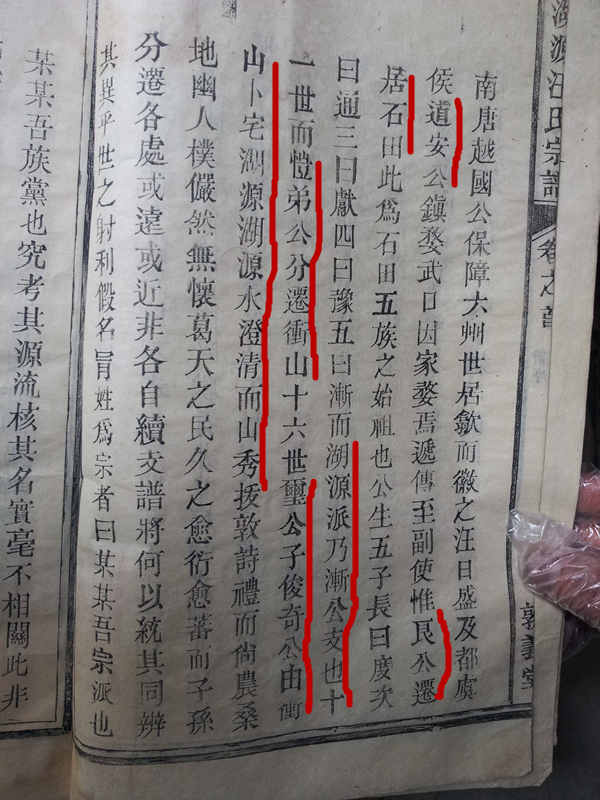 湖源汪氏宗譜
卷之首
敦義堂
南唐越國公保障六州世居歙而徽之汪日盛及都虞
侯道安公鎮婺武口因家婺焉遞傳至副使惟艮公遷
居石田此爲石田五族之始祖也公生五子長曰度次
曰通三曰獻四曰豫五曰漸而湖源派乃漸公支也十
一世而愷弟公分遷衝山十六世璽公子俊奇公由衝
山卜宅湖源湖源水澄清而山秀拔敦詩禮而尙農桑
地幽人樸儼然無懷葛天之民久之愈衍愈蕃而子孫
分遷各處或遠或近非各自續支譜將何以統其同辨
其異乎世之射利假名冐姓爲宗者曰某某吾宗派也
某某吾族黨也究考其源流核其名實毫不相關此非